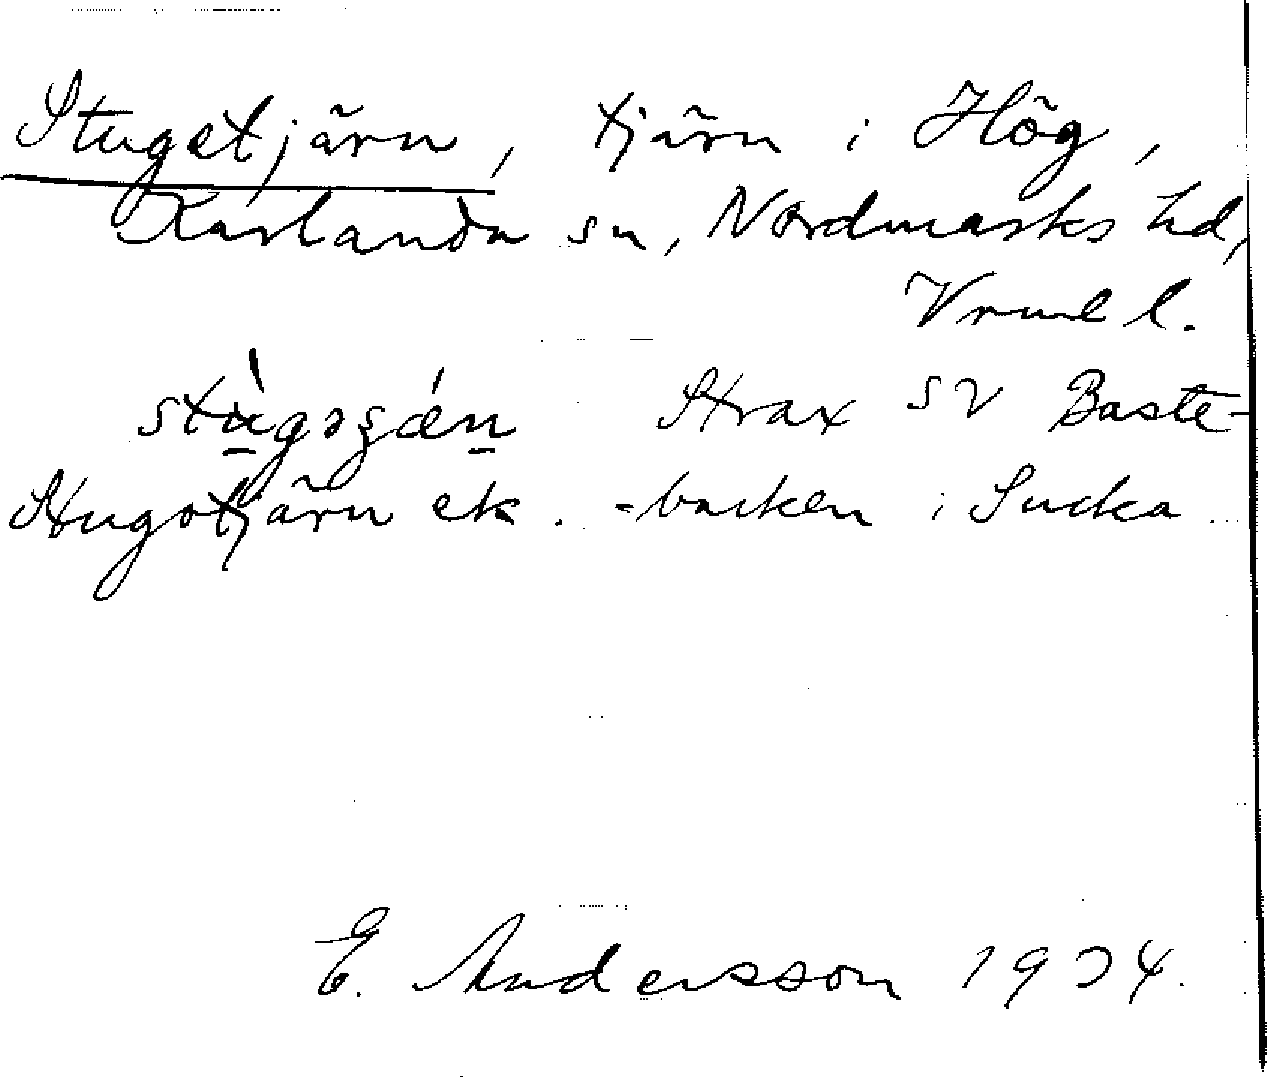 Stugetjärn, tjärn i Hög,
Karlanda sn, Nordmarks hd,
Vrml l.
stùgəʂǽn Strax SV Baste-
Stugotjärn ek. -backen i Sucka
E. Andersson 1934.